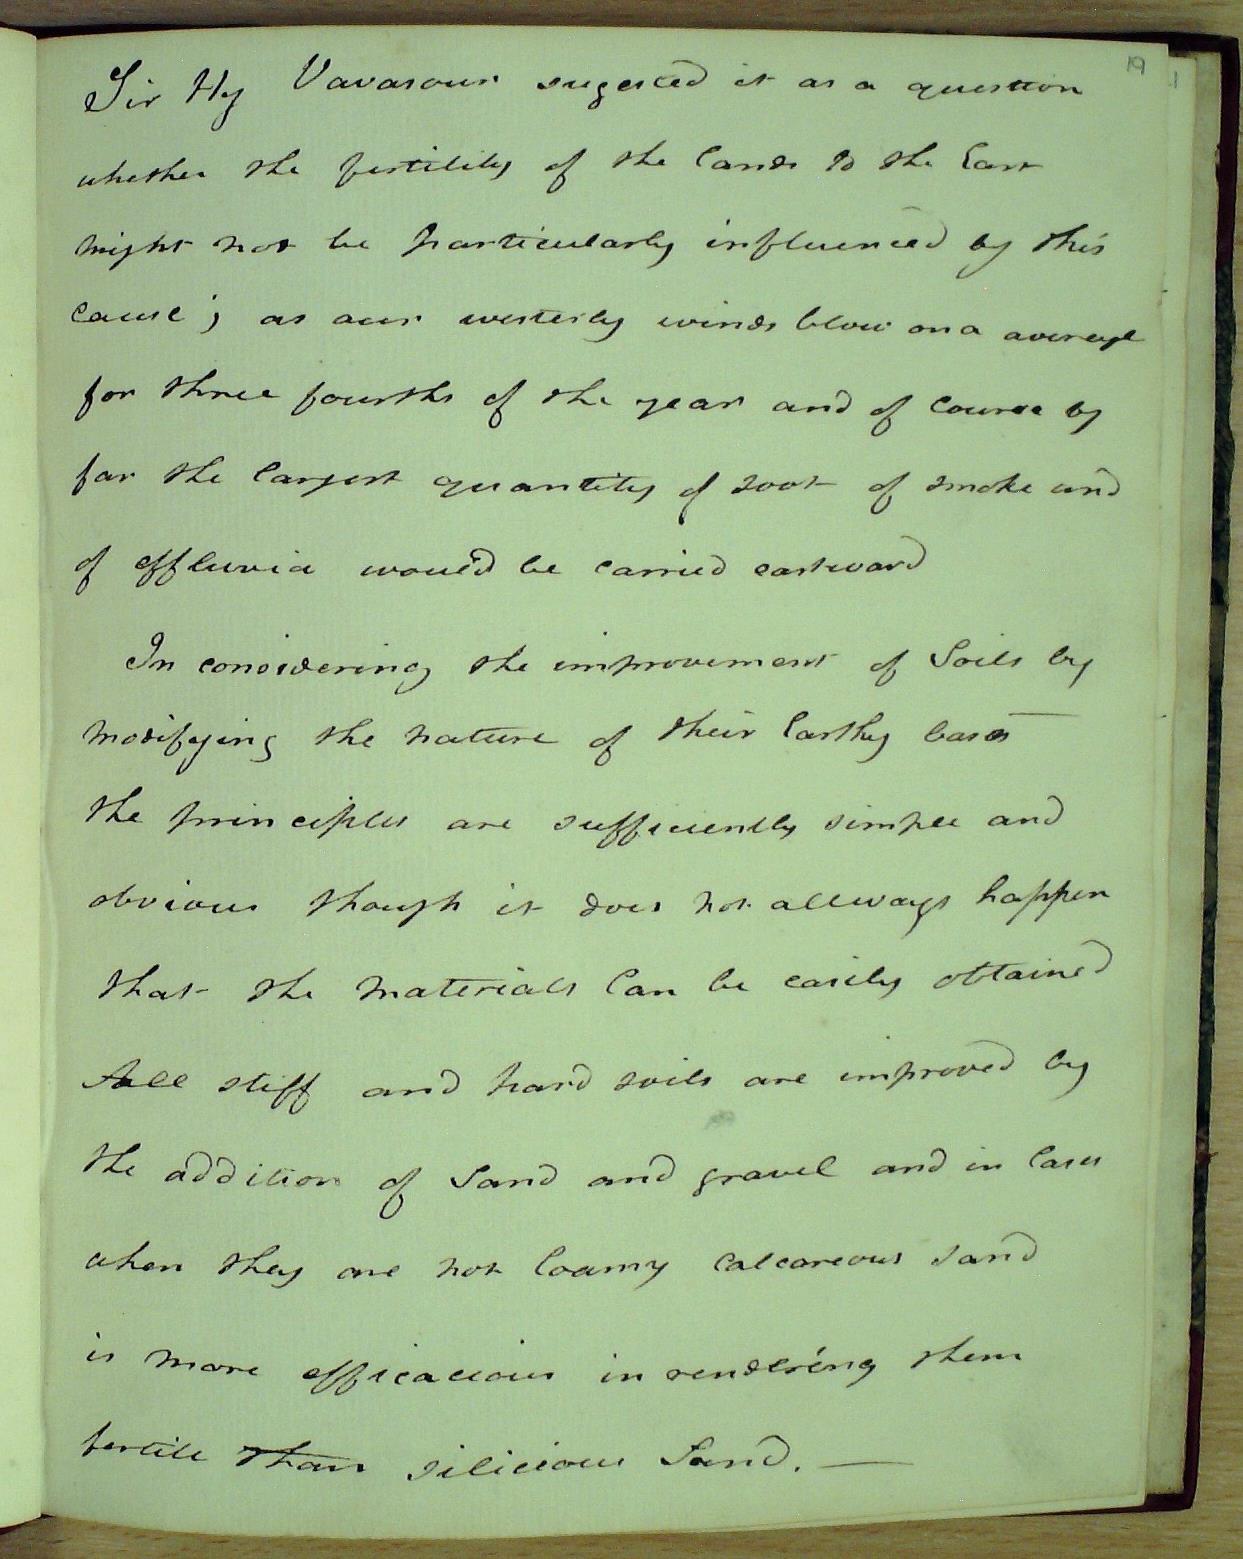 19
1
Sir Hy Vavasour sugested it as a question
whether the fertility of the lands to the East
might not be particularly influenced by this
cause; as our westerly winds blow on a average
for three fourths of the year and of course by
far the largest quantity of soot of smoke and
of effluvia would be carried eastward
In considering the improvement of Soils by
modifying the nature of their Earthy bases
the principles are sufficiently simple and
obvious though it does not allways happen
that the materials Can be easily obtained
All stiff and hard soils are improved by
the addition of Sand and gravel and in Cases
when they are not loamy Calcareous sand
is more efficacious in rendering them
fertile than silicious Sand. —